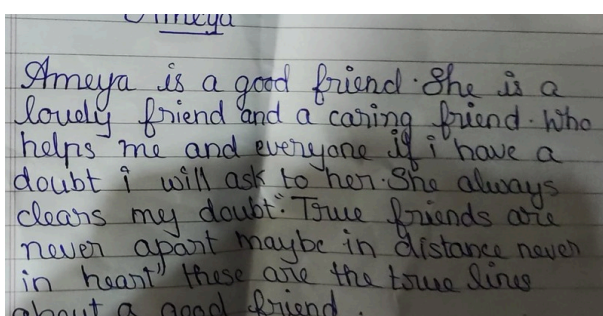 Ameya
Ameya is a good friend. She is a
lovely friend and a caring friend. Who
helps me and everyone if i have a
doubt i will ask to her. She always
clears my doubt. "True friends are
never apart maybe in distance never
in heart" these are the true lines
about a good friend.